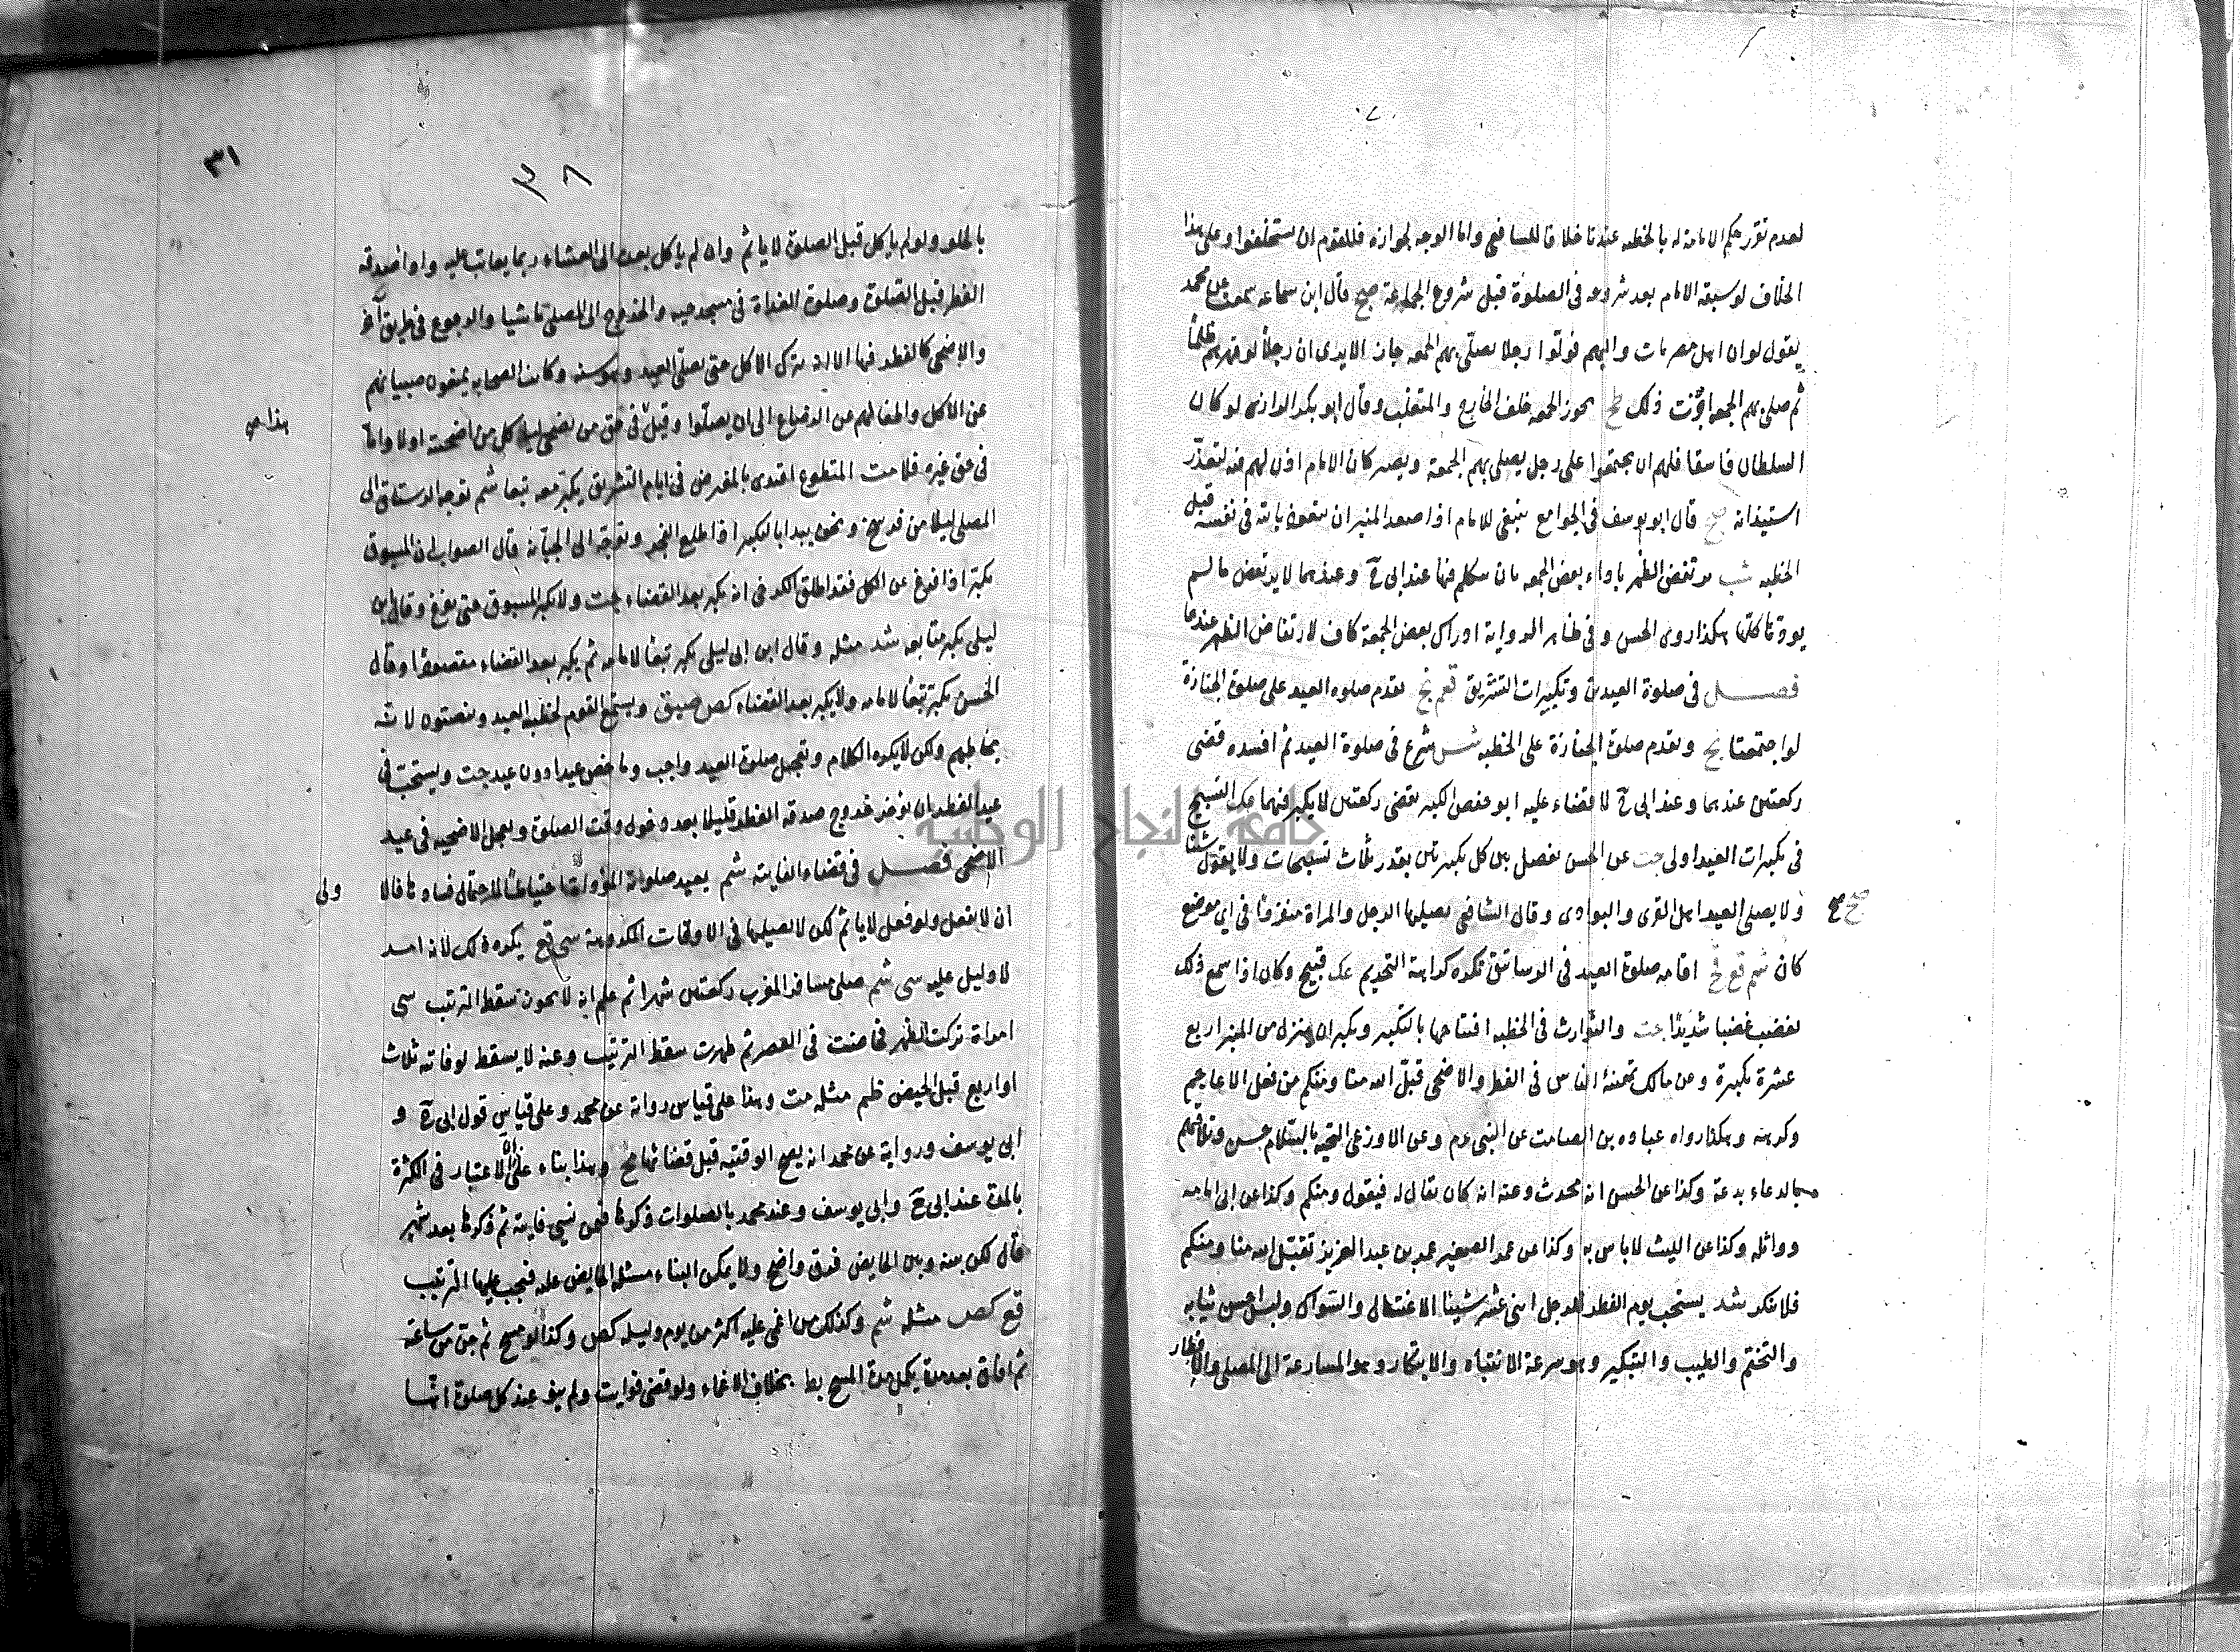 لعدم تقرر حكم الامامة له بالخطبه عندنا خلافا للشافعي واما الوجه لجوازه فللقوم ان يستخلفوا وعلى هذا
الخلاف لو سبقه الامام بعد شروعه في الصلوة قبل شروع الجماعة صح قال ابن سماعه سمعت عن محمد
يقول لو ان اهل مصر مات واليهم فولوا رجلا يصلى بهم الجمعه جاز الا يرى ان رجلا لو قهرهم ظلما
ثم صلى بهم الجمعه اجزت ذلك يجوز الجمعه خلف الخارج والمتغلب وقال ابو بكر الرازي لو كان
السلطان فاسقا فلهم ان يجتمعوا على رجل يصلى بهم الجمعة ويصير كان الامام اذن لهم فيه لتعذر
استيذانه قال ابو يوسف في الجوامع ينبغي للامام اذا صعد المنبر ان يتعوذ بالله في نفسه قبل
الخطبه شب يرتفض الظهر باداء بعض الجمعه بان يتكلم فيها عند ابي ح وعندهما لا يرتفض ما لم
يؤدها كلها هكذا روى الحسن وفي ظاهر الرواية ادراك بعض الجمعة كاف لارتفاض الظهر عندهما
فصل في صلوة العيدين وتكبيرات التشريق يقدم صلوه العيد على صلوة الجنازة
لو اجتمعتا ويقدم صلوة الجنازة على الخطبه شرع في صلوة العيد ثم افسده قضى
ركعتين عندهما وعند ابي ح لا قضاء عليه ابو حفص الكبير يقضى ركعتين لا يكبر فيهما عك التسبيح
في تكبيرات العيد اولى جت عن الحسن يفصل بين كل تكبيرتين بقدر ثلاث تسبيحات ولا يقول شيئا
ولا يصلى العيد اهل القرى والبوادى وقال الشافعي يصليها الرجل والمراة منفردا في اي موضع
كان شم قع اقامه صلوة العيد في الرساتيق يكره كراهة التحريم عك قبيح وكان اذا سمع ذلك
يغضب غضبا شديدا جت والتوارث في الخطبه افتتاحها بالتكبير ويكبر ان ينزل من المنبر اربع
عشرة تكبيرة وعن مالك تهنئة الناس في الفطر والاضحى تقبل الله منا ومنكم من فعل الاعاجيم
وكرهه وهكذا رواه عباده بن الصامت عن النبي عم وعن الاوزعي التحيه بالسلام حسن
بالدعاء بدعة وكذا عن الحسن انه محدث وعنه انه كان يقال له فيقول ومنكم وكذا عن ابي امامه
وواثله وكذا عن الليث لا باس به وكذا عن عمر الصغير عمر بن عبد العزيز تقبل الله منا ومنكم
فلا ينكر شد يستحب يوم الفطر للرجل اثنى عشر شيئا الاغتسال والسواك ولبس احسن ثيابه
والتختم والطيب والتبكير وهو سرعة الانتباه والابتكار وهو المسارعة الى المصلى والافطار
٣٨
٣١
بالحلو ولو لم ياكل قبل الصلوة لا ياثم وان لم ياكل بعده الى العشاء ربما يعاتب عليه واداء صدقه
الفطر قبل الصلوة وصلوة الغداة في مسجد حيه والخروج الى المصلى ماشيا والرجوع في طريق آخر
والاضحى كالفطر فيها الا انه يترك الاكل حتى يصلى العيد وهو سنه وكانت الصحابه يمنعون صبيانهم
عن الاكل واطفالهم من الرضاع الى ان يصلوا وقيل في حق من يضحى لياكل من اضحيته اولا واما
هذا
في حق غيره فلا مت المتطوع اقتدى بالمفترض في ايام التشريق يكبر معه تبعا شم توجه الرستاقي الى
المصلى ليلا من فرسخ ونحوه يبدا بالتكبير اذا طلع الفجر وتوجه الى الجبانة قال الصواب ان المسبوق
يكبر اذا فرغ عن الكل فقد اطلق الكرخي انه يكبر بعد القضاء جت ولا يكبر المسبوق حتى يفرغ وقال ابن
ليلى يكبر متابعه شد مثله وقال ابن ابي ليلى يكبر تبعا لامامه ثم يكبر بعد القضاء مقصودا وقال
الحسن يكبر تبعا لامامه ولا يكبر بعد القضاء كص ويستمع القوم لخطبة العيد وينصتون لانه
يخاطبهم ولكن لا يكره الكلام وتعجيل صلوة العيد واجب وما خص عيدا دون عيد جت ويستحب في
عيد الفطر ان يؤخر خروج صدقه الفطر قليلا بعد دخول وقت الصلوة ويعجل الاضحيه في عيد
الاضحى فصل في قضاء الفايته شم يعيد صلواته المؤداة احتياطا لاحتمال فسادها قالا
ان لا يفعل ولو فعل لا ياثم لكن لا يصليها في الاوقات المكروهة سى قع يكره ذلك لانه امر
لا دليل عليه سى شم صلى مسافر المغرب ركعتين شهرا ثم علم انه لا يجوز سقط الترتيب سى
امراة تركت الظهر فحاضت في العصر ثم طهرت سقط الترتيب وعنه لا يسقط لو فاته ثلاث
او اربع قبل الحيض ظم مثله مت وهذا على قياس رواية عن محمد وعلى قياس قول ابي ح و
ابي يوسف ورواية عن محمد انه يصح الوقتيه قبل قضائها وهذا بناء على ان الاعتبار في الكثرة
بالمدة عند ابي ح وابي يوسف وعند محمد بالصلوات ذكرها فمن نسي فايتة ثم ذكرها بعد شهر
قال لكن بينه وبين الحايض فرق واضح ولا يمكن البناء مسئلة الحايض عليه فيجب عليها الترتيب
قع كص مثله شم وكذلك من اغمى عليه اكثر من يوم وليله كص ثم جن من ساعته
ثم افاق بعد مدة يكمل مدة المسح بط بخلاف الاغماء ولو قضى فوايت ولم ينو عند كل صلوة انها